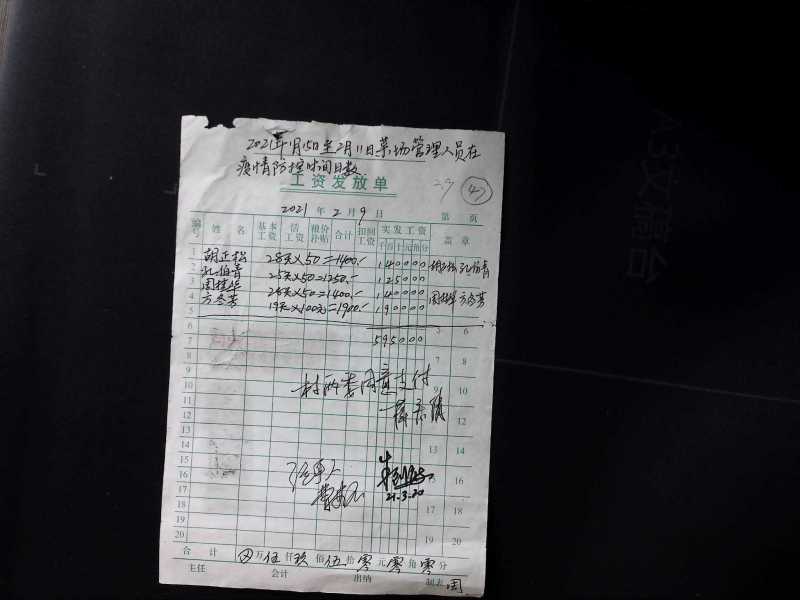 2021年1月15日至2月11日菜场管理人员在
疫情防控时间日数
工资发放单
29 47
2021年2月9日 第 页
编号 姓名 基本工资 活工资 粮价补贴 合计 扣回工资 实发工资 千百十元角分 盖章
1 胡正松 28天×50=1400.- 140000
2 孔伯青 25天×50=1250.- 125000 孔伯青
3 周桂华 28天×50=1400.- 140000 周桂华 方冬芳
4 方冬芳 19天×100元=1900.- 190000
5
6 5 6
7 595000
8 7 8
9
10 村两委同意支付 9 10
11
12 12
13
14 13 14
15
16 经单人 16
17 21.3.20
18 17 18
19
20 19 20
合计 万伍仟玖佰伍拾零元零角零分
主任 会计 出纳 制表 周
A3文稿台